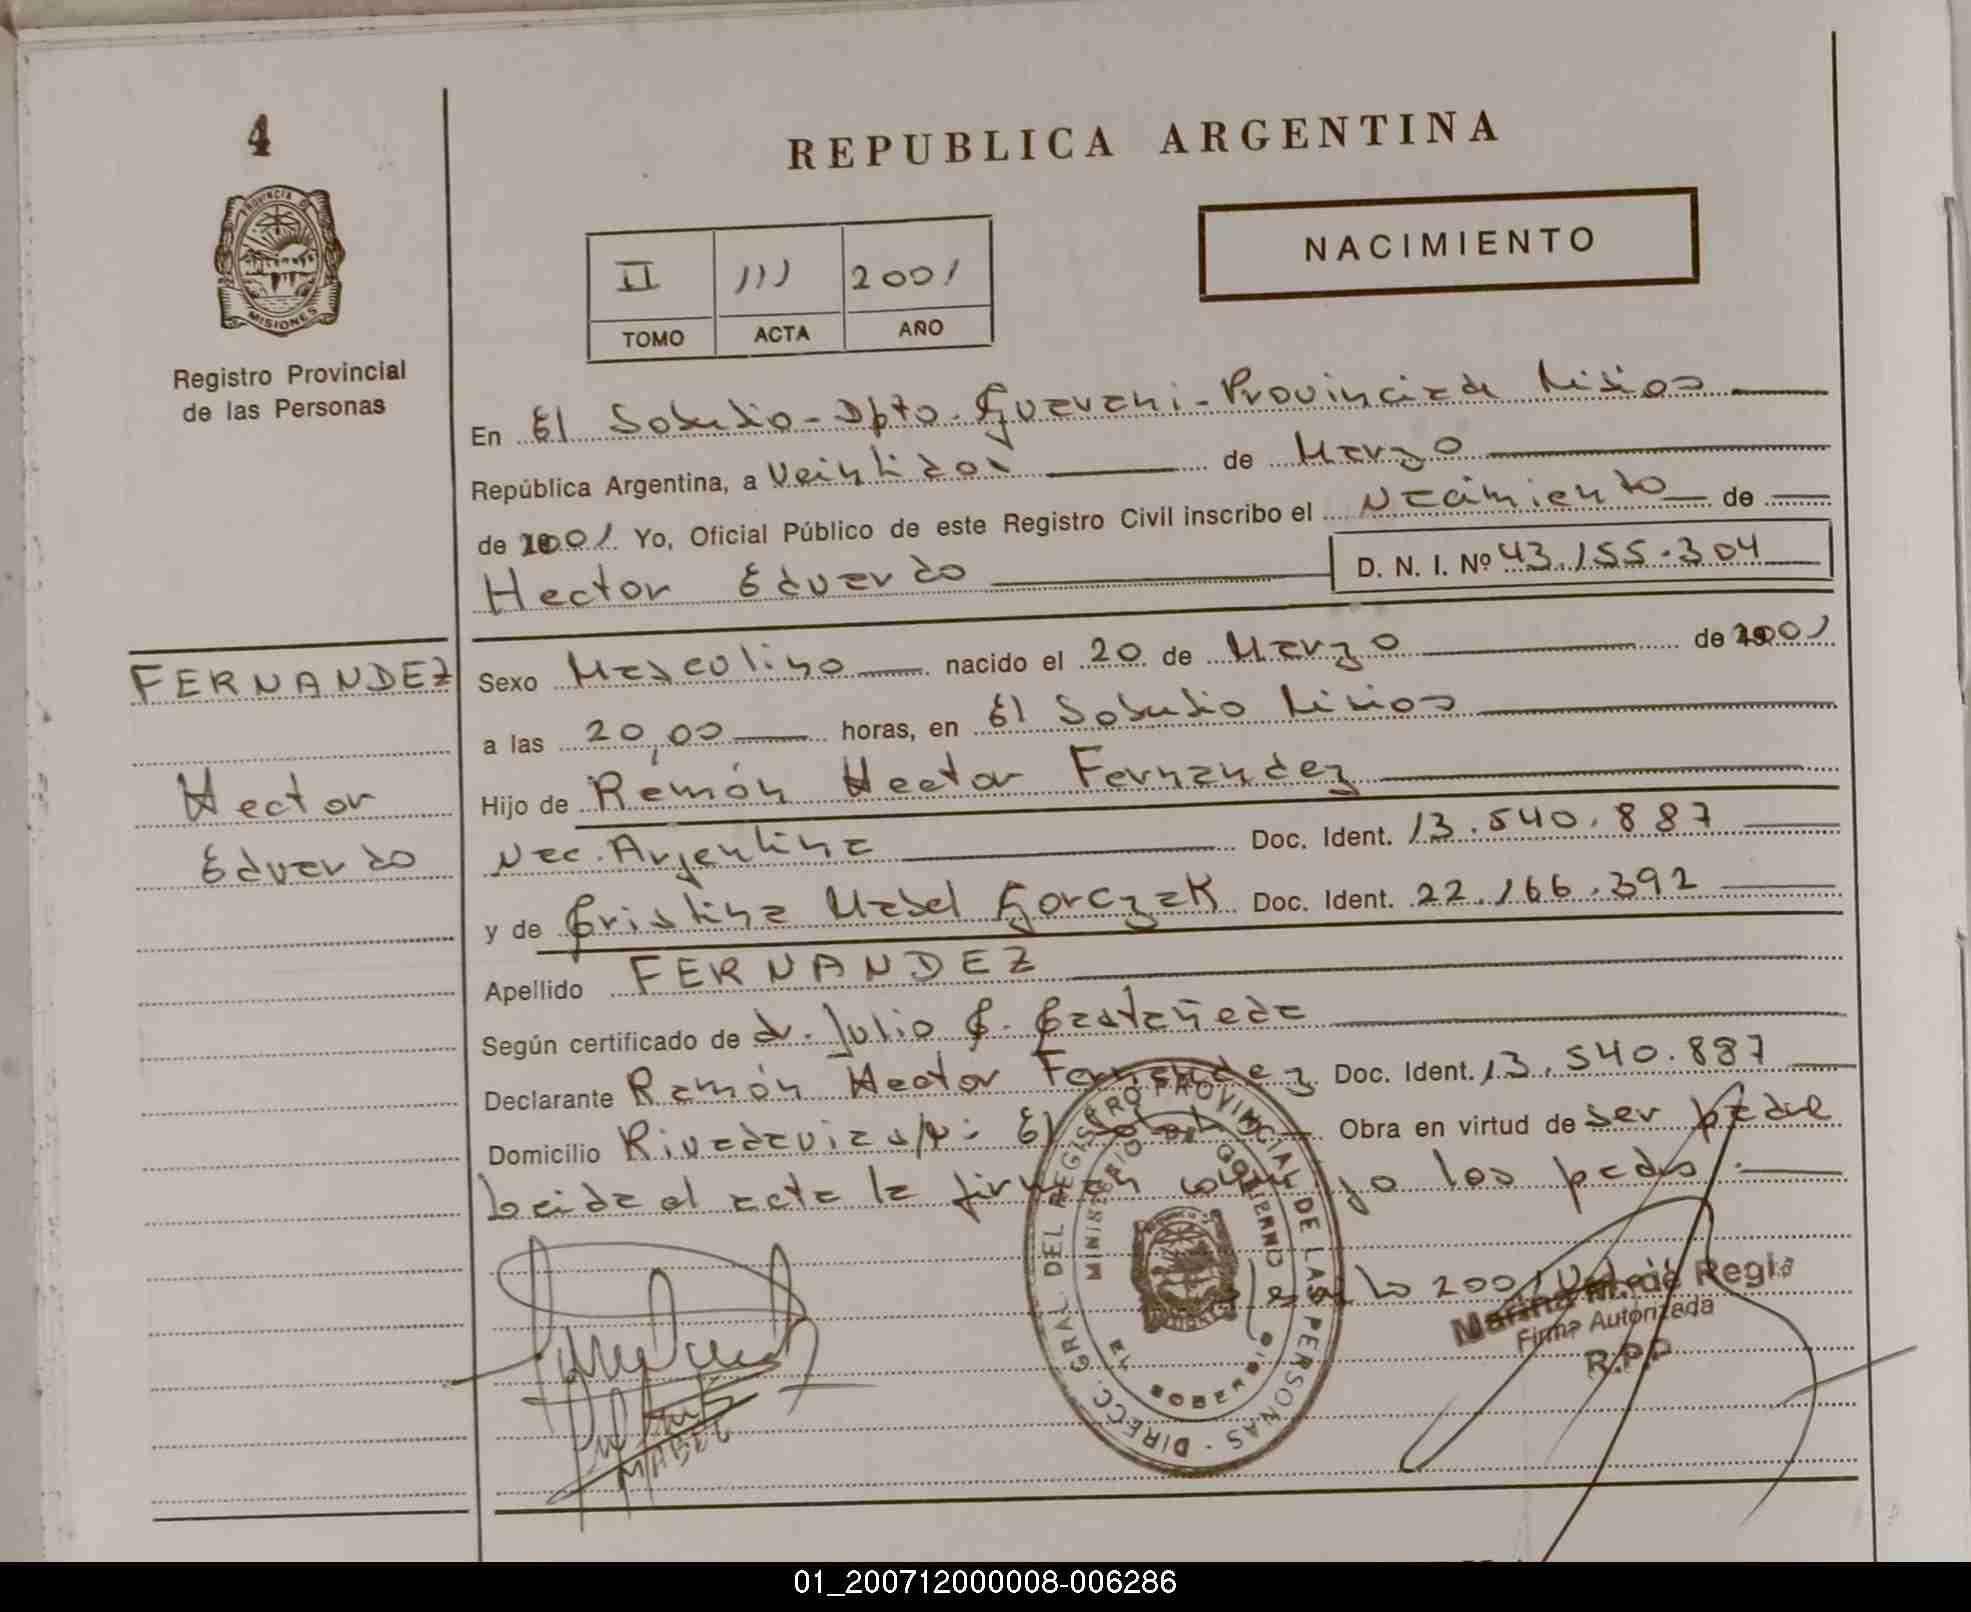 4
REPUBLICA ARGENTINA
PROVINCIA D
MISIONES
Registro Provincial
de las Personas
NACIMIENTO
II 111 2001
TOMO ACTA AÑO
En El Soberbio - Dpto. Guarani - Provincia de Misiones
República Argentina, a Veintidos de Marzo
de 2001 Yo, Oficial Público de este Registro Civil inscribo el Nacimiento de
Hector Eduardo D. N. I. Nº 43.155.304
FERNANDEZ
Hector
Eduardo
Sexo Masculino nacido el 20 de Marzo de 2001
a las 20,00 horas, en El Soberbio Misiones
Hijo de Ramón Hector Fernandez
Nac. Argentina Doc. Ident. 13.540.887
y de Cristina Mabel Gorczak Doc. Ident. 22.166.392
Apellido FERNANDEZ
Según certificado de dr. Julio C. Castañeda
Declarante Ramón Hector Fernandez Doc. Ident. 13.540.887
Domicilio Rivadavia s/n: El Obra en virtud de ser padre
Leida el acta la firman los padres.
2001
DIRECC. GRAL. DEL REGISTRO PROVINCIAL DE LAS PERSONAS
MINISTERIO DE GOBIERNO
Marina M. de Regla
Firma Autorizada
R.P.P
MABEL
01_200712000008-006286